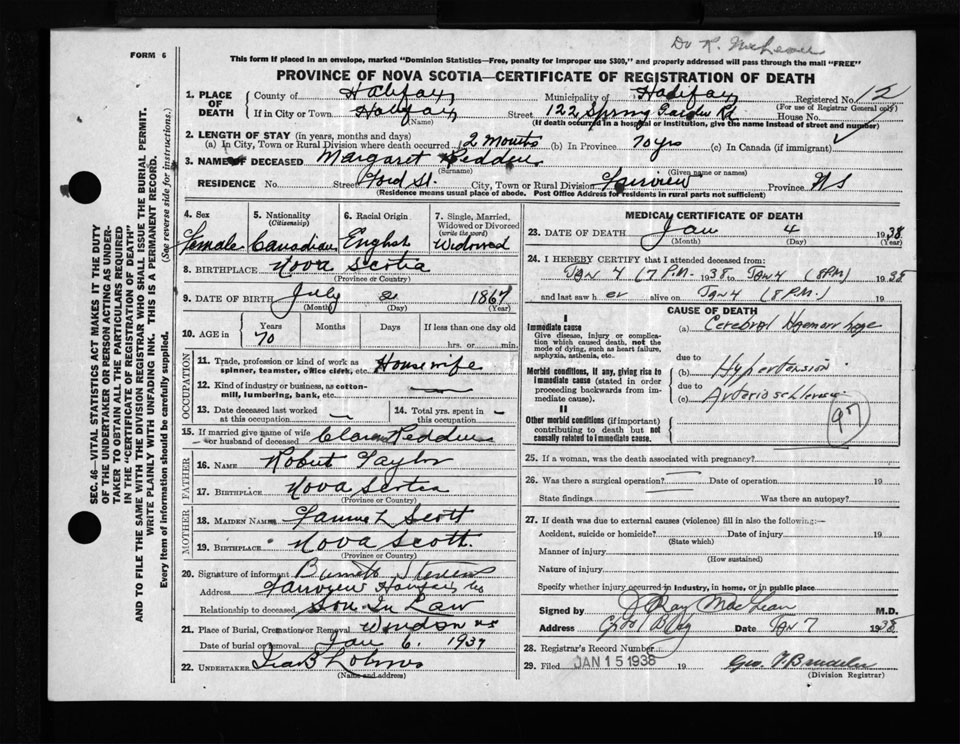 Dr R. MacLean
FORM 6
This form if placed in an envelope, marked "Dominion Statistics—Free, penalty for improper use $300," and properly addressed will pass through the mail "FREE"
PROVINCE OF NOVA SCOTIA—CERTIFICATE OF REGISTRATION OF DEATH
1. PLACE OF DEATH
County of Halifax Municipality of Halifax Registered No. 12
(For use of Registrar General only)
If in City or Town Halifax Street 122 Spring Garden Rd House No.
(Name) (If death occurred in a hospital or institution, give the name instead of street and number)
2. LENGTH OF STAY (in years, months and days)
(a) In City, Town or Rural Division where death occurred 2 Months (b) In Province 70 yrs (c) In Canada (if immigrant) ✓
3. NAME OF DECEASED Margaret Redden
(Surname) (Given name or names)
RESIDENCE No. Street Ford St. City, Town or Rural Division Fairview Province NS
(Residence means usual place of abode. Post Office Address for Residents in rural parts not sufficient)
4. Sex
Female
5. Nationality
(Citizenship)
Canadian
6. Racial Origin
English
7. Single, Married, Widowed or Divorced
(write the word)
Widowed
8. BIRTHPLACE Nova Scotia
(Province or Country)
9. DATE OF BIRTH July 2 1867
(Month) (Day) (Year)
10. AGE in Years Months Days If less than one day old
70 hrs. or min.
OCCUPATION
11. Trade, profession or kind of work as spinner, teamster, office clerk, etc. Housewife
12. Kind of industry or business, as cotton-mill, lumbering, bank, etc. —
13. Date deceased last worked at this occupation —
14. Total yrs. spent in this occupation —
15. If married give name of wife or husband of deceased Redden
FATHER
16. NAME Robert Taylor
17. BIRTHPLACE Nova Scotia
(Province or Country)
MOTHER
18. MAIDEN NAME Scott
19. BIRTHPLACE Nova Scott.
(Province or Country)
20. Signature of informant
Address Fairview Halifax
Relationship to deceased Son In Law
21. Place of Burial, Cremation or Removal Windsor NS
Date of burial or removal Jan 6. 1937
22. UNDERTAKER
(Name and address)
MEDICAL CERTIFICATE OF DEATH
23. DATE OF DEATH Jan 4 1938
(Month) (Day) (Year)
24. I HEREBY CERTIFY that I attended deceased from:
Jan 4 (7 P.M.) 1938 to Jan 4 (8PM) 1938
and last saw h er alive on Jan 4 (8 P.M.) 19
CAUSE OF DEATH
I
Immediate cause
Give disease, injury or complication which caused death, not the mode of dying, such as heart failure, asphyxia, asthenia, etc.
(a) Cerebral Haemorrhage
due to
Morbid conditions, if any, giving rise to immediate cause (stated in order proceeding backwards from immediate cause).
(b) Hypertension
due to
(c) Arteriosclerosis
97
II
Other morbid conditions (if important) contributing to death but not causally related to immediate cause.
25. If a woman, was the death associated with pregnancy?
26. Was there a surgical operation? Date of operation 19
State findings Was there an autopsy?
27. If death was due to external causes (violence) fill in also the following:—
Accident, suicide or homicide? Date of injury 19
(State which)
Manner of injury
(How sustained)
Nature of injury
Specify whether injury occurred in industry, in home, or in public place
Signed by J Ray MacLean M.D.
Address Date Jan 7 1938
28. Registrar's Record Number
29. Filed JAN 15 1938 19
(Division Registrar)
SEC. 46—VITAL STATISTICS ACT MAKES IT THE DUTY
OF THE UNDERTAKER OR PERSON ACTING AS UNDER-
TAKER TO OBTAIN ALL THE PARTICULARS REQUIRED
IN THE "CERTIFICATE OF REGISTRATION OF DEATH"
AND TO FILE THE SAME WITH THE DIVISION REGISTRAR WHO SHALL ISSUE THE BURIAL PERMIT.
WRITE PLAINLY WITH UNFADING INK. THIS IS A PERMANENT RECORD.
Every item of information should be carefully supplied. (See reverse side for instructions.)